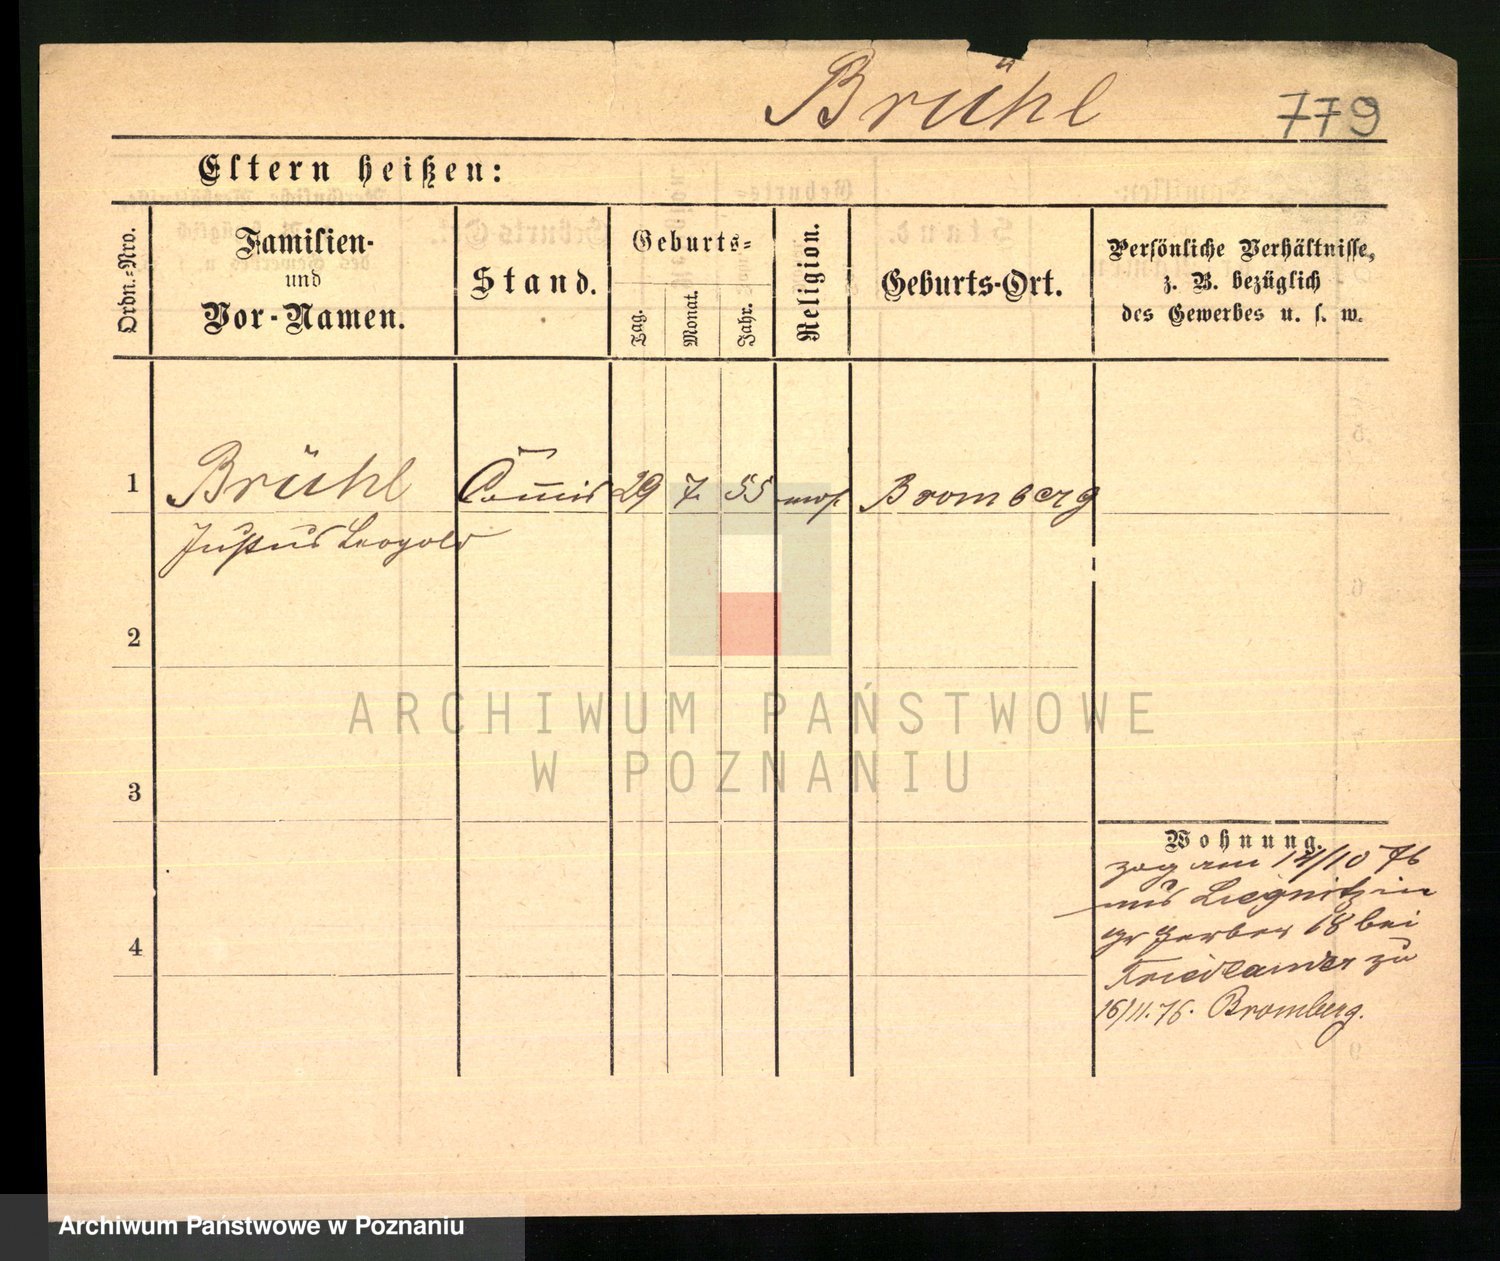 Brühl 779
Eltern heißen:
Ordn.-Nro.
Familien-
und
Vor-Namen.
Stand.
Geburts-
Tag.
Monat.
Jahr.
Religion.
Geburts-Ort.
Persönliche Verhältnisse,
z. B. bezüglich
des Gewerbes u. s. w.
1 Brühl Com̅is 29 7 55 mos. Bromberg
Justus Leopold
2
ARCHIWUM PAŃSTWOWE
W POZNANIU
3
Wohnung.
zog am 14/10 76
aus Liegnitz in
gr Gerber 18 bei
4
Friedlander zu
16/11.76. Bromberg.
Archiwum Państwowe w Poznaniu